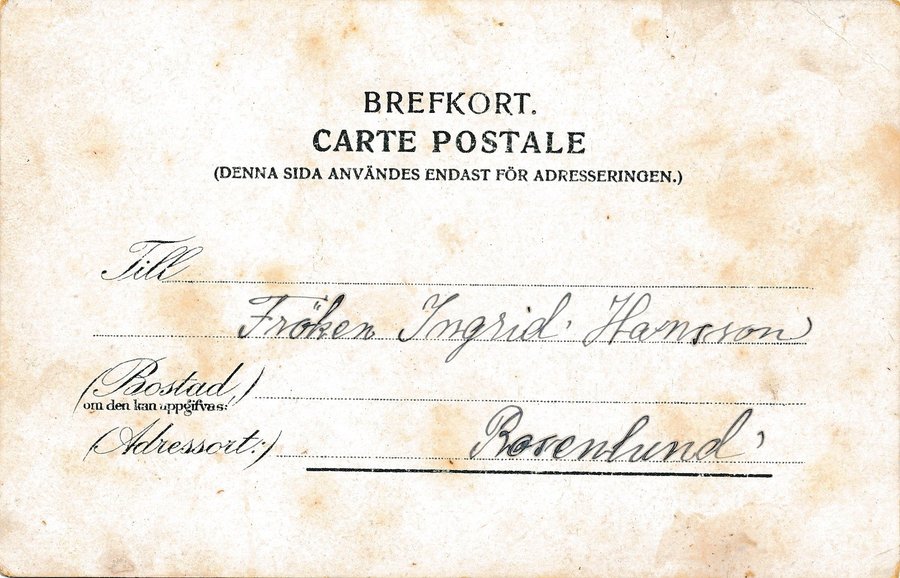 BREFKORT.
CARTE POSTALE
(DENNA SIDA ANVÄNDES ENDAST FÖR ADRESSERINGEN.)
Till
Fröken Ingrid Hansson
(Bostad,)
om den kan uppgifvas:
(Adressort:)
Rosenlund